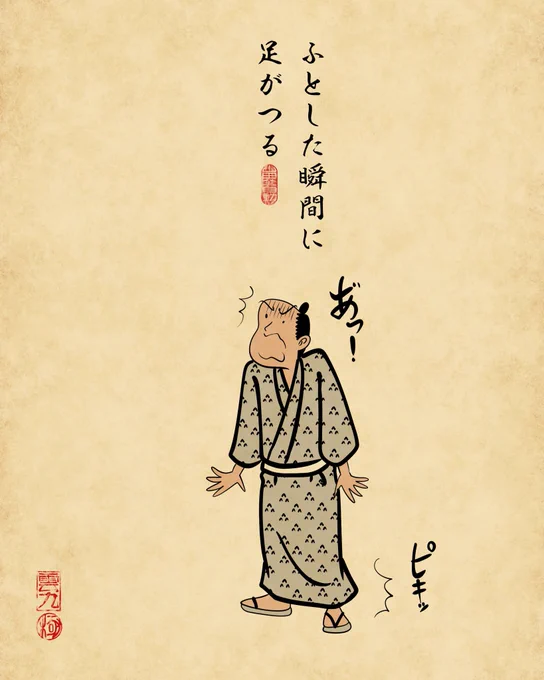 ふとした瞬間に
足がつる
あ゛っ!
ピキッ